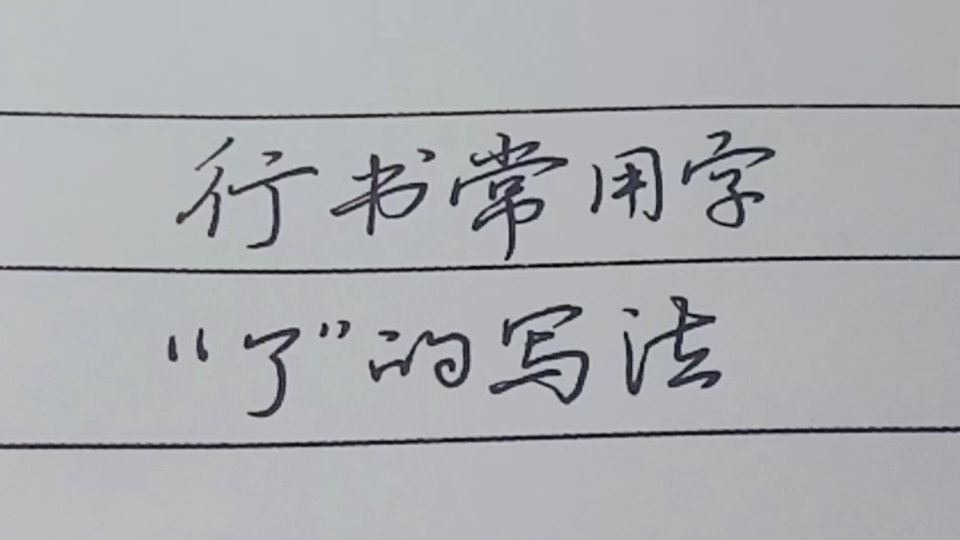 行书常用字
“了”的写法